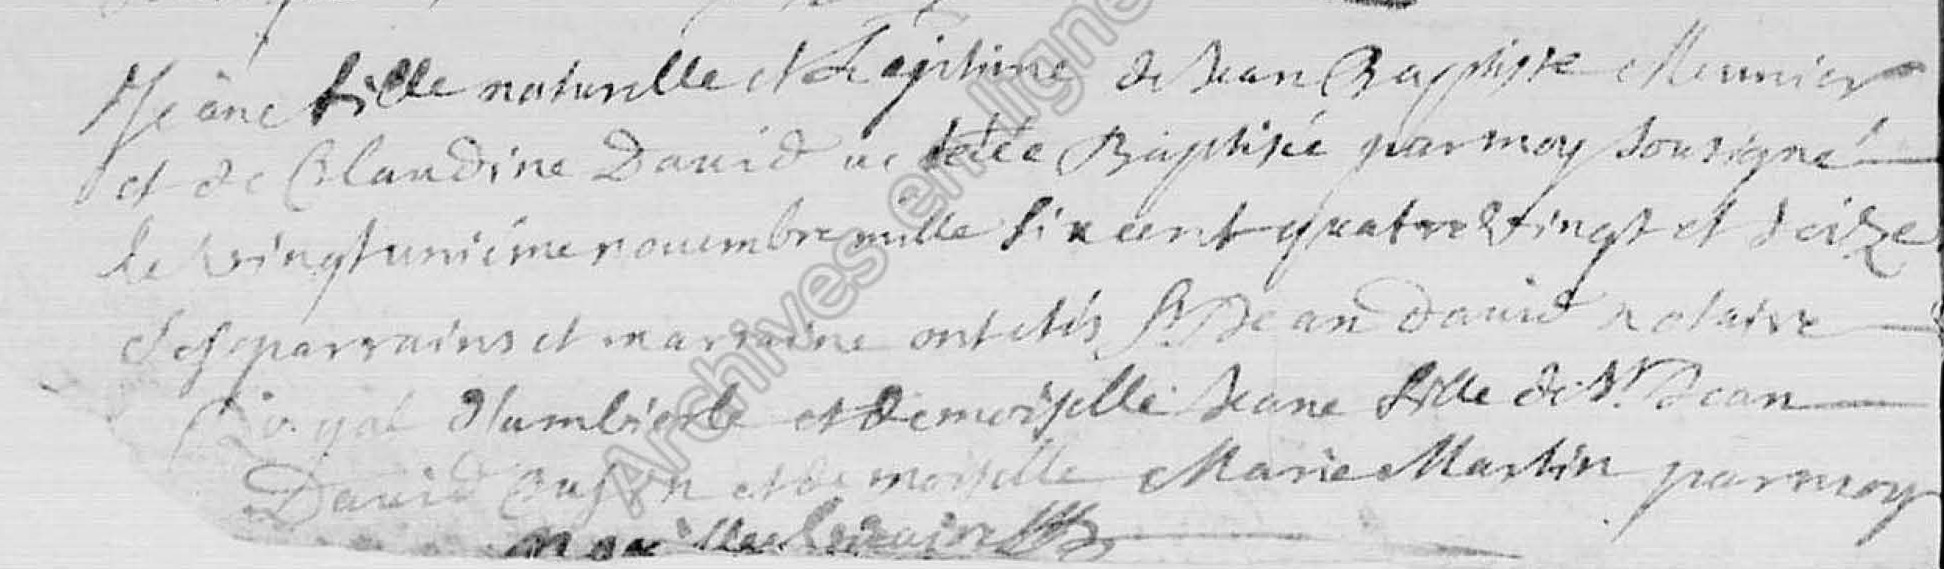 Jeane fille naturelle et legitime de Jean Baptiste Meunier
et de Claudine David ac tété Baptisée par moy sousigné
le vingtunième nouembre mille six cent quatre vingt et seize
Ses parrains et marraine ont étés Sr. Jean David notaire
Royal d'ambierle et demoiselle Jeane fille de Sr. Jean
David et demoiselle Marie Martin par moy
Archives en ligne